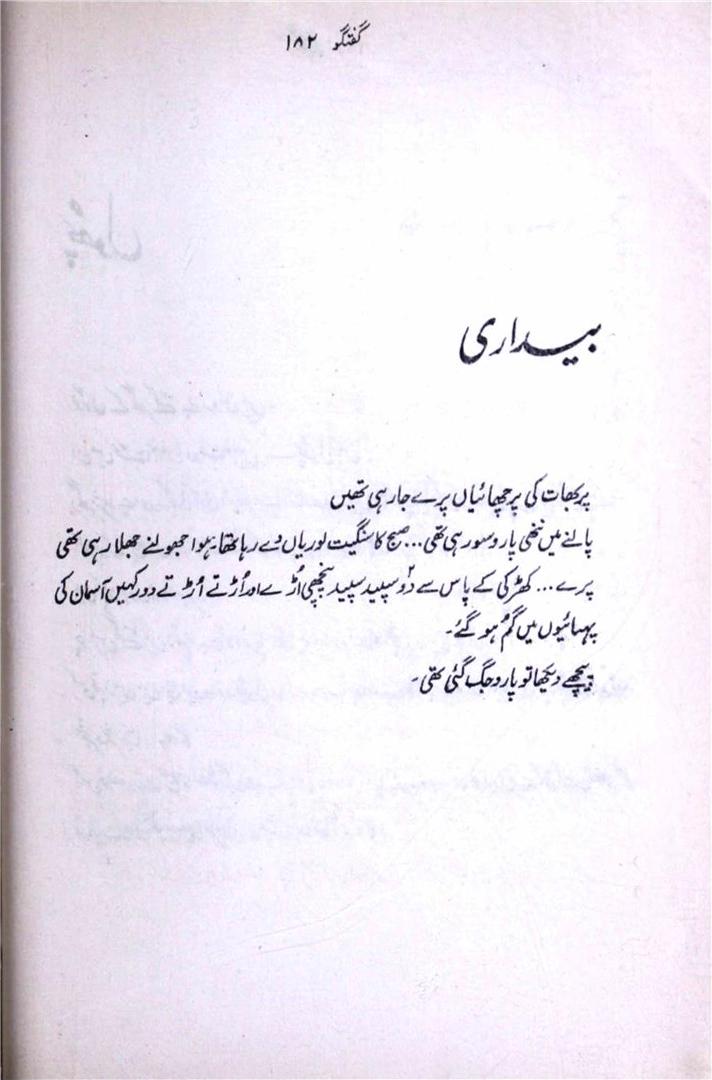 گفتگو ۱۸۲
بیداری
پربھات کی پرچھائیاں پرے جا رہی تھیں
پالنے میں ننھی پارو سو رہی تھی... صبح کا سنگیت لوریاں دے رہا تھا۔ ہوا جھولنے جھلا رہی تھی
پرے... کھڑکی کے پاس سے دو سپید سپید پنچھی اُڑے اور اُڑتے اُڑتے دور کہیں آسمان کی
پہنائیوں میں گم ہو گئے۔
پیچھے دیکھا تو پارو جگ گئی تھی۔